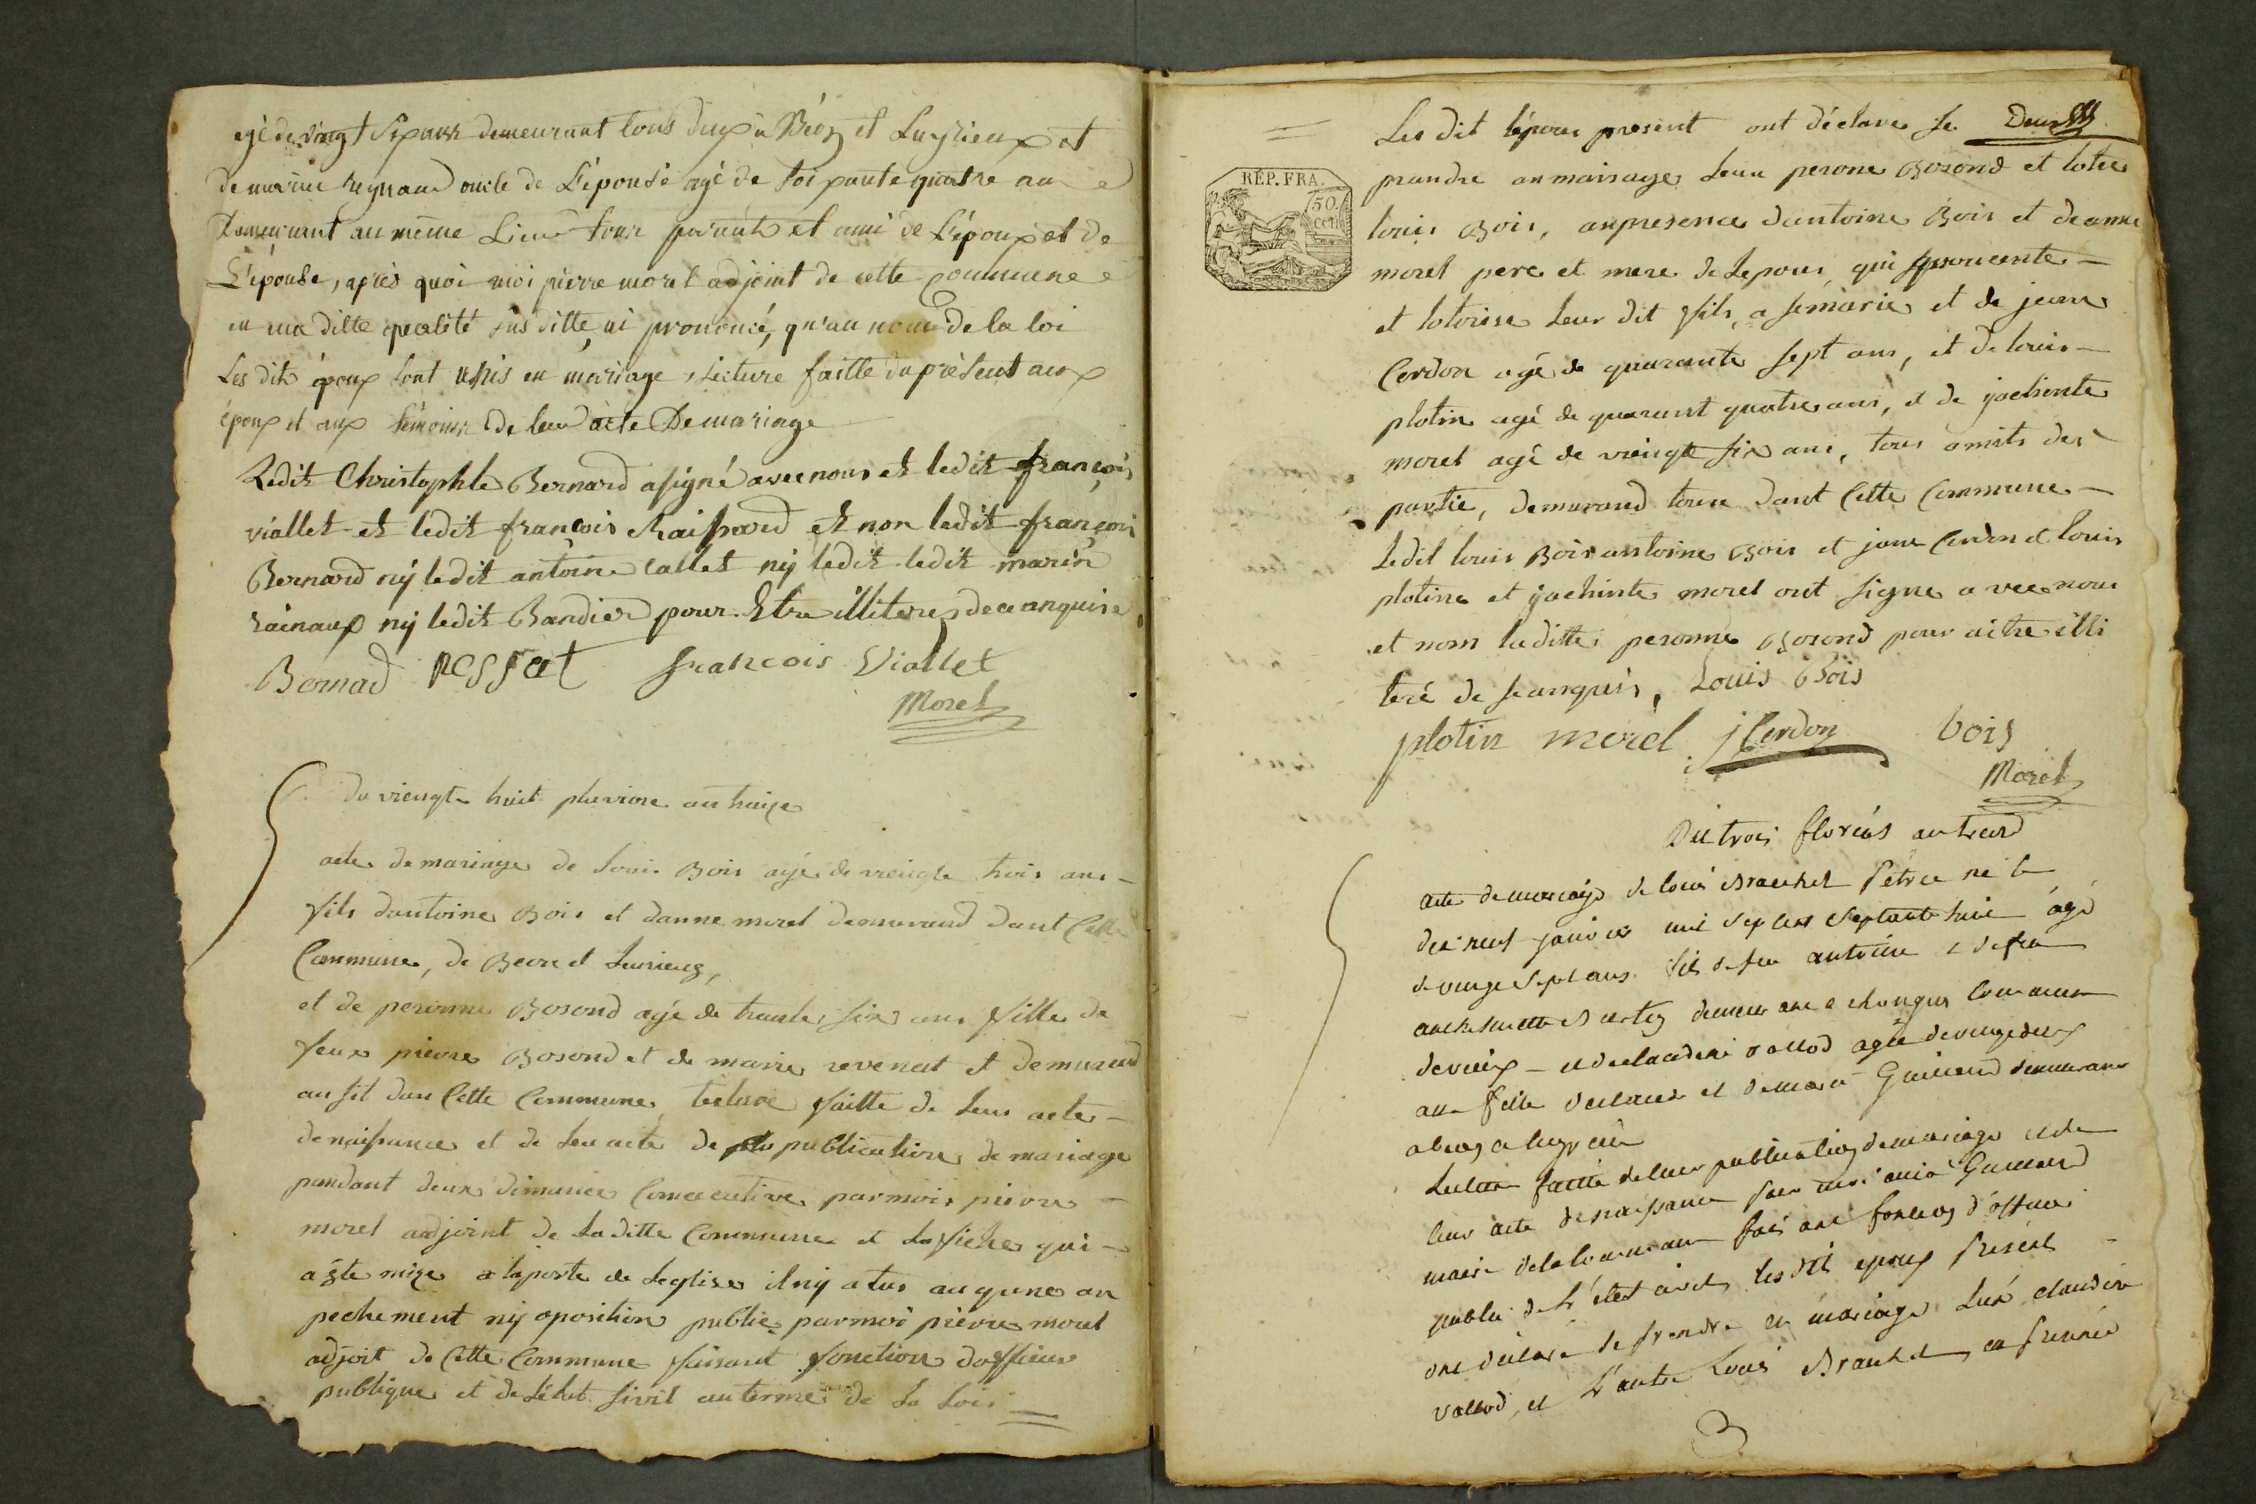 agé de vingt six ans demeurant tous deux à Béon et Luyrieux et
de marin reynaud oncle de L'épouse agé de soixante quatre an
Demeurant au même Lieu tous parents et ami de L'époux et de
L'épouse, après quoi moi pierre morel adjoint de cette commune
en ma ditte qualité sus ditte, ai prononcé, qu'au nom de la loi
Les dits époux sont unis en mariage, Lecture faitte du présent aux
époux et aux témoins de leur acte De mariage
Ledit Christophle Bernard a signé avec nous et ledit françois
viallet et ledit francois Raissard et non ledit françois
Bernard ny ledit antoine callet ny ledit ledit marin
rainaux ny ledit Bandier pour Etre illiteres de ce anquise
Bernad pessat francois Viallet
Morel
du viengt huit pluviose an traize
acte de mariage de Louis Bois agé de viengt trois ans
fils dantoine Bois et danne morel demurand dant Cette
Commune, de Beon et Luirieux,
et de peronne Bosond agé de trante six ans fille de
feux pierre Bosond et de marie revenat et demurand
ausit dans Cette Commune, lecture faitte de leur acte
de naissance et de leu acte de publication de mariage
pandant deux dimance Consecutive par mois pierre
morel adjoint de La ditte Commune et Lafiche qui
a ete mise a laporte de leglise il ny a tus au qune an
pechement ny oposition publie par moi pierre morel
adjoit de Cette Commune faisant fonction dofficier
publique et de Létat sivil au terme de La Lois
Les dit lepoux present ont déclare se Deux
prandre an mairiage Leun perone Bosond et lotre
louis Bois, anpresence dantoine Bois et de anne
morel pere et mere de Lepoux, qui
et lotorise leur dit fils, a se marie et de jean
Cerdon agé de quarante sept ans, et de louis
plotin agé de quarant quatre ans, et de jachinte
morel agé de viengt six ans, tous amits des
partie, demurand tous dant Cette Commune
Ledit louis Bois antoine Bois et jean Cerdon et louis
plotin et jachinte morel ont signe a vec nous
et nom laditte peronne Bosond pour aitre illi
teré de se anquis, Louis Bois
plotin morel jCerdon bois
Morel
RÉP. FRA.
50.
cent
Du trois floréas an treid
acte de mariage de louis Brachet
dix neuf janvier mil sept cent septante huit agé
de vingt sept ans fils de feu antoine e de feu
demeurant a commune
de vieux et de claudine vallod agée de vingt deux
ans fille de claude et de marie Guillaud demeurant
a beon e luyrieu
Lecture faitte de leur publication de mariage et de
leur acte de naissance par moi Guillaud
maire de la commune faisant fonction d'officier
public de l'état civil, les dit epoux présent
ont déclaré se prendre en mariage lun claudine
vallod, et L'autre Louis Brachet en présence